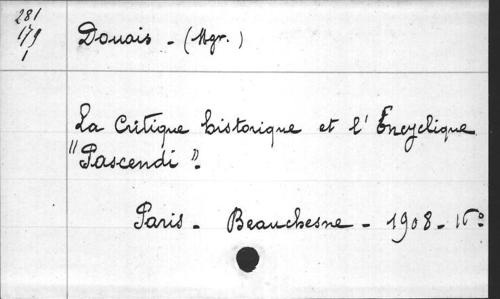 281
179
1
Douais - (Mgr.)
La Critique historique et l'Encyclique
"Pascendi".
Paris - Beauchesne - 1908 - 16º